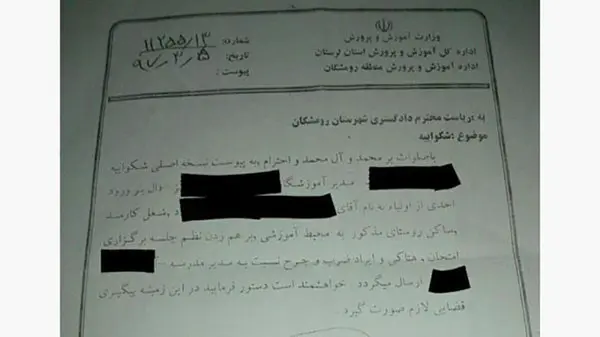 وزارت آموزش و پرورش
اداره کل آموزش و پرورش استان لرستان
اداره آموزش و پرورش منطقه رومشکان
شماره: ۱۱۲۵۵/۱۳
تاریخ: ۹۷/۳/۵
پیوست:
به :ریاست محترم دادگستری شهرستان رومشکان
موضوع :شکواییه
باصلوات بر محمد و آل محمد و احترام ,به پیوست نسخه اصلی شکواییه
مدیر آموزشگا دال بر ورود
احدی از اولیاء به نام آقای شغل کارمند
,ساکن روستای مذکور به محیط آموزشی وبر هم زدن نظم جلسه برگزاری
امتحان , هتاکی و ایراد ضرب و جرح نسبت به مدیر مدرسه
ارسال میگردد . خواهشمند است دستور فرمایید در این زمینه پیگیری
قضایی لازم صورت گیرد .